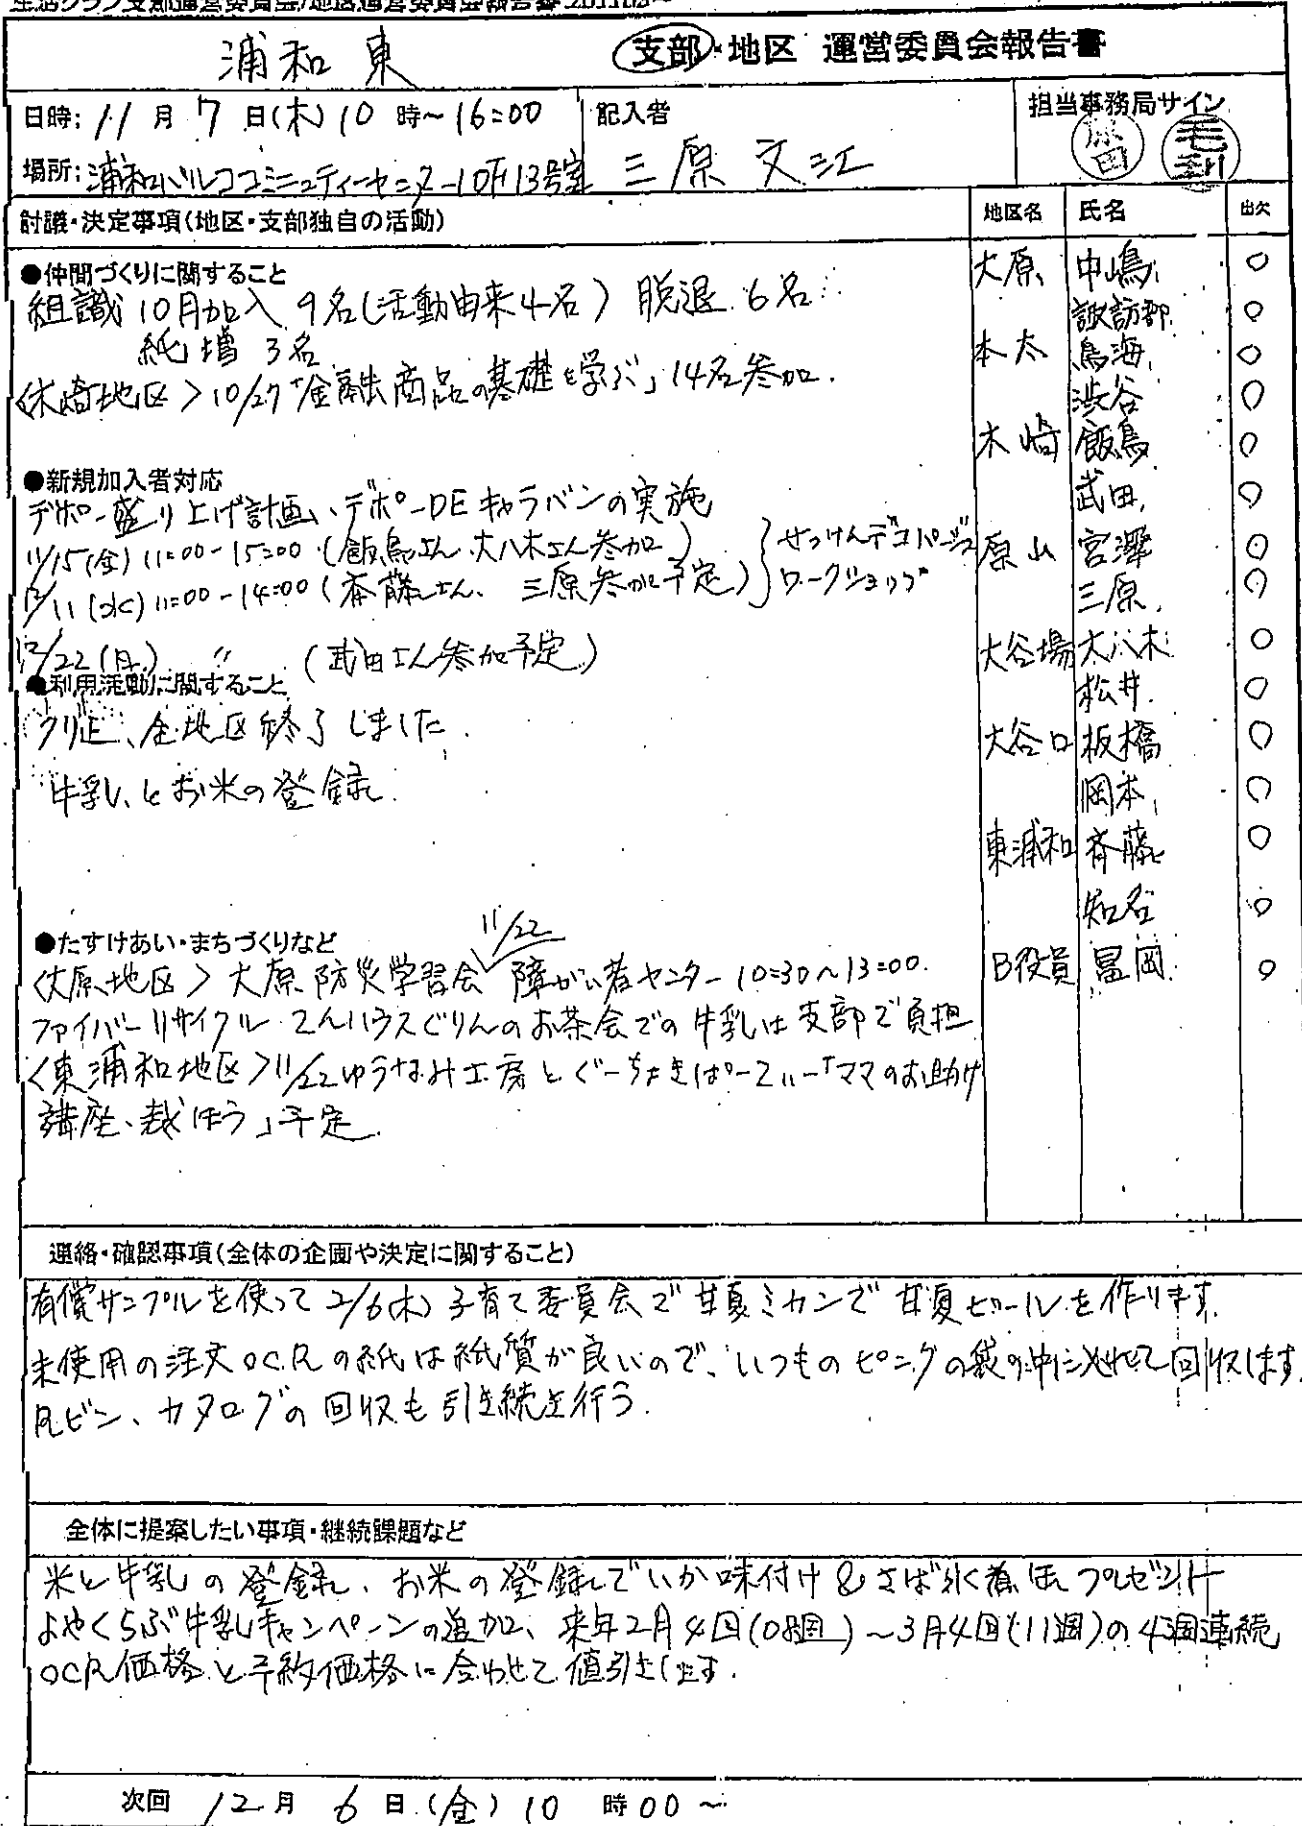 生活クラブ支部運営委員会/地区運営委員会報告書 201103~
浦和東 支部・地区 運営委員会報告書
日時: 11月7日(木) 10時~16:00 記入者 三原文江 担当事務局サイン
場所: 浦和パルココミュニティーセンター10F 13号室
討議・決定事項(地区・支部独自の活動) 地区名 氏名 出欠
●仲間づくりに関すること
組識 10月加入 9名(活動由来4名) 脱退 6名
純増 3名
<木崎地区> 10/27「金融商品の基礎を学ぶ」14名参加.
●新規加入者対応
デポー盛り上げ計画、デポーDEキャラバンの実施
11/15(金) 11:00-15:00 (飯島さん、大八木さん参加) せっけんデコパージュ
12/11(水) 11:00-14:00 (斎藤さん、三原参加予定) ワークショップ
12/22(日) 〃 (武田さん参加予定)
●利用活動に関すること
クリ正、全地区終了しました.
牛乳とお米の登録.
●たすけあい・まちづくりなど
11/22
<大原地区> 大原防災学習会 障がい者センター 10:30~13:00.
ファイバーリサイクル てんハウスぐりんのお茶会での牛乳は支部で負担
<東浦和地区> 11/22 ゆうなみ工房とぐーちょきぱーてぃー「ママのお助け
講座、裁ほう」予定.
大原 中嶋 ○
諏訪部 ○
本太 鳥海 ○
渋谷 ○
木崎 飯島 ○
武田 ○
原山 宮澤 ○
三原 ○
大谷場 大八木 ○
松井 ○
大谷口 板橋 ○
岡本 ○
東浦和 斉藤 ○
知名 ○
B役員 冨岡 ○
連絡・確認事項(全体の企画や決定に関すること)
有償サンプルを使って 2/6(木) 子育て委員会で甘夏ミカンで甘夏ピールを作ります.
未使用の注文OCRの紙は紙質が良いので、いつものピニングの袋の中に入れて回収します.
Rビン、カタログの回収も引き続き行う.
全体に提案したい事項・継続課題など
米と牛乳の登録、お米の登録でいか味付け&さば水煮缶プレゼント
よやくらぶ牛乳キャンペーンの追加、来年2月4回(08週)~3月4回(11週)の4週連続
OCR価格と予約価格に合わせて値引きします.
次回 12月 6日(金) 10時00~